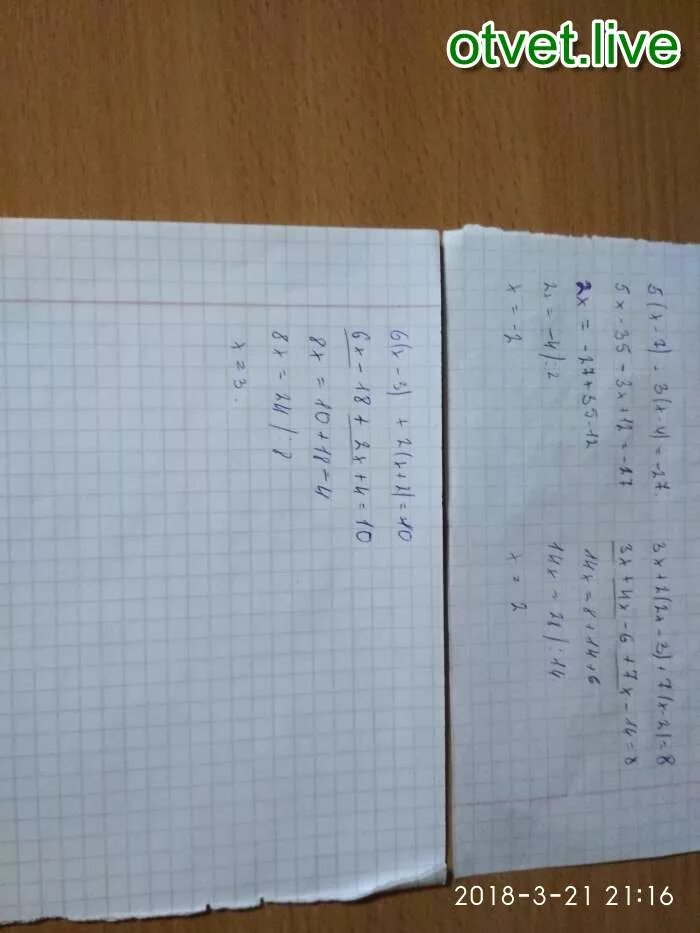 otvet.live
5(x-7)-3(x-4)=-27.
5x-35-3x+12=-27
2x=-27+35-12
2x=-4|:2
x=-2
3x+2(2x-3)+7(x-2)=8
3x+4x-6+7x-14=8
14x=8+14+6
14x=28|:14
x=2
6(x-3)+2(x+2)=10
6x-18+2x+4=10
8x=10+18-4
8x=24|:8
x=3.
2018-3-21 21:16